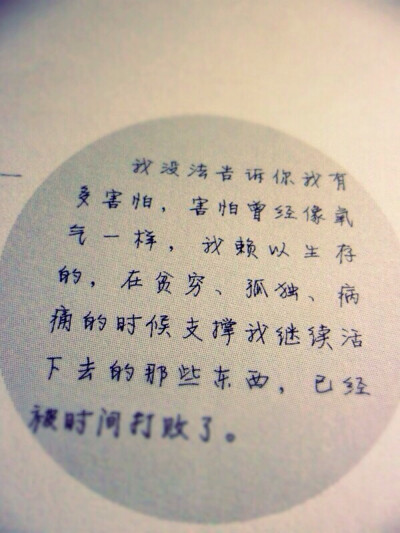 我没法告诉你我有
多害怕，害怕曾经像氧
气一样，我赖以生存
的，在贫穷、孤独、病
痛的时候支撑我继续活
下去的那些东西，已经
被时间打败了。